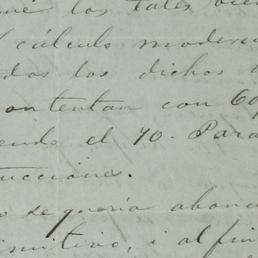 que los tales bie
l cálculo moderad
dos los dichos
ontentan con 60
endo el 70. Para
ucciones.
o se quería aban
imitivo, i al fin